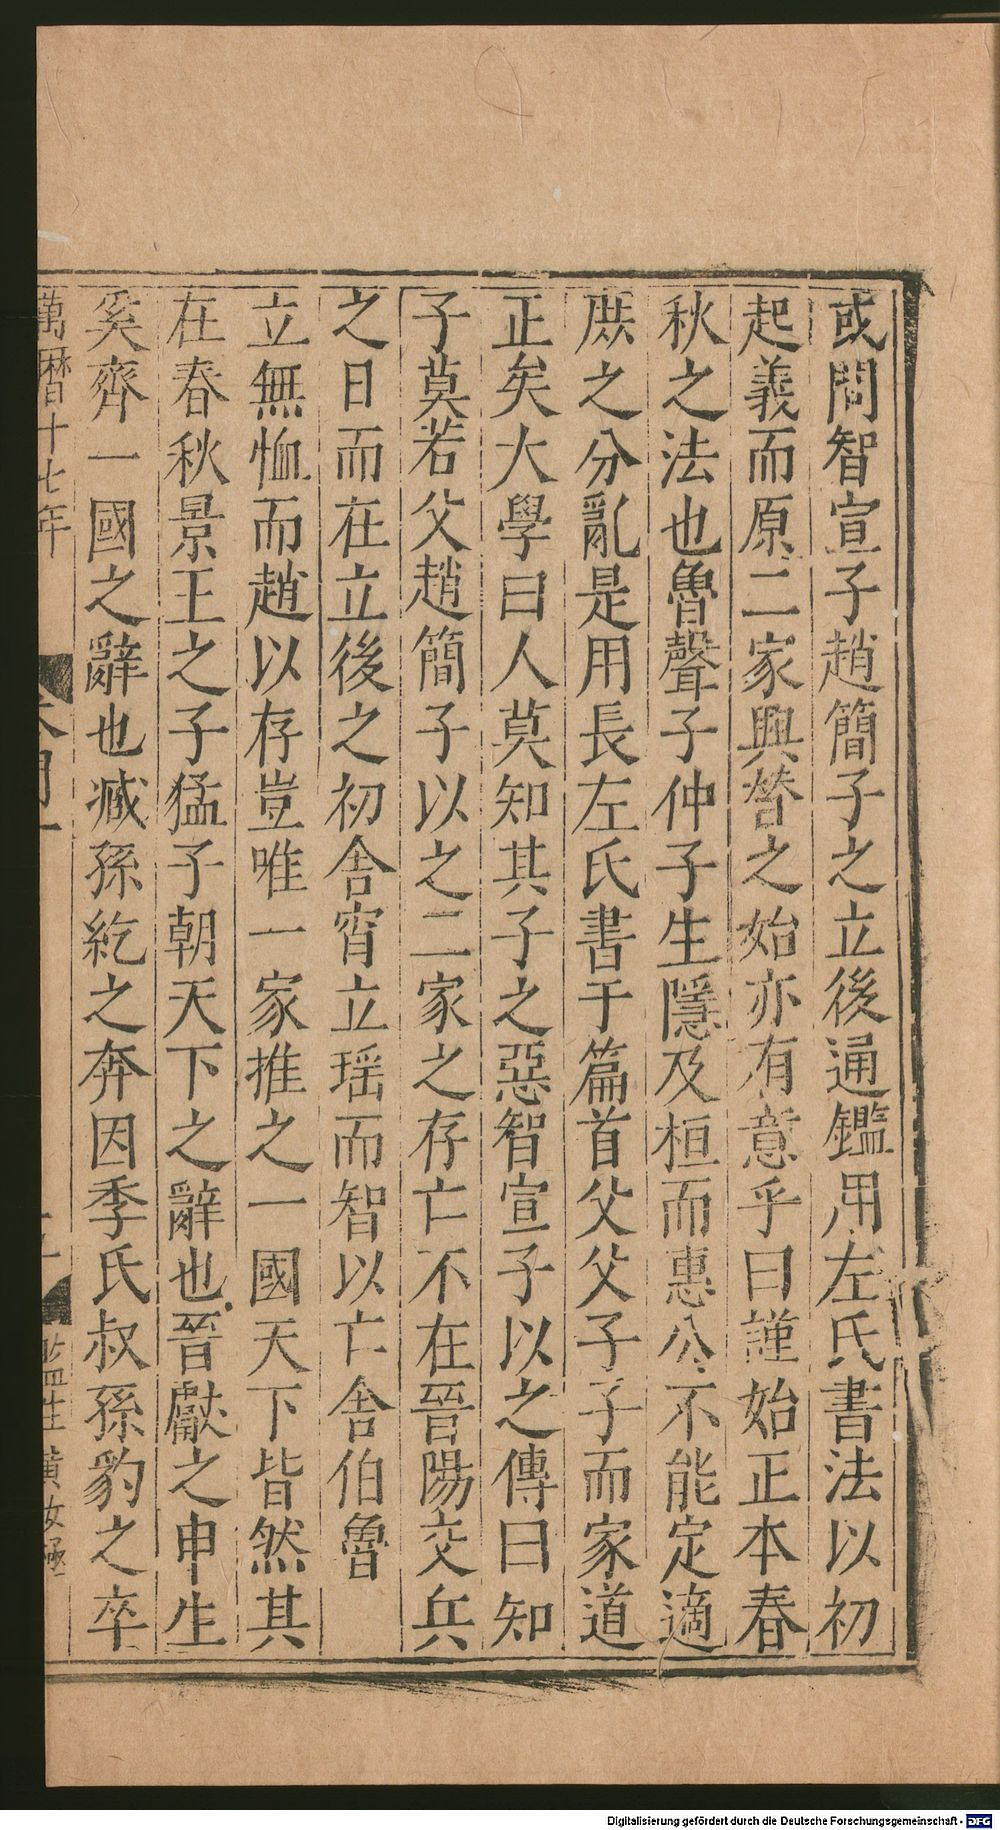 或問智宣子趙簡子之立後通鑑用左氏書法以初
起義而原二家興替之始亦有意乎曰謹始正本春
秋之法也魯聲子仲子生隱及桓而惠公不能定適
庶之分亂是用長左氏書于篇首父父子子而家道
正矣大學曰人莫知其子之惡智宣子以之傳曰知
子莫若父趙簡子以之二家之存亡不在晉陽交兵
之日而在立後之初舍宵立瑶而智以亡舍伯魯
立無恤而趙以存豈唯一家推之一國天下皆然其
在春秋景王之子猛子朝天下之辭也晉獻之申生
奚齊一國之辭也臧孫紇之奔因季氏叔孫豹之卒
萬曆十七年
監生黃汝極
Digitalisierung gefördert durch die Deutsche Forschungsgemeinschaft - DFG